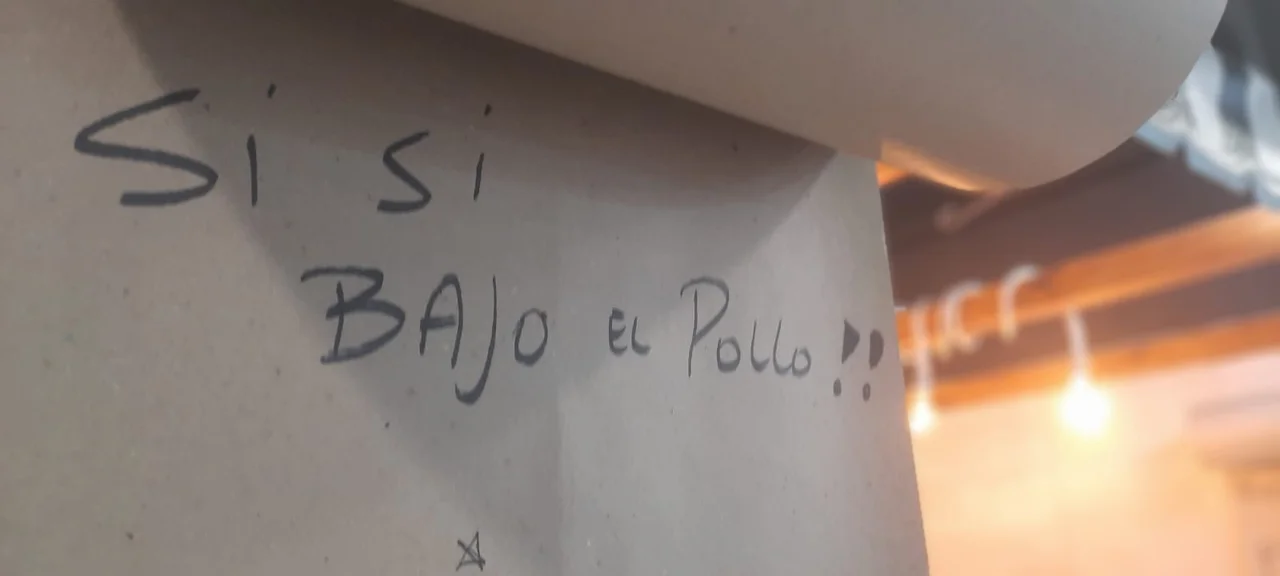 Si si
BAJO EL POLLO !!